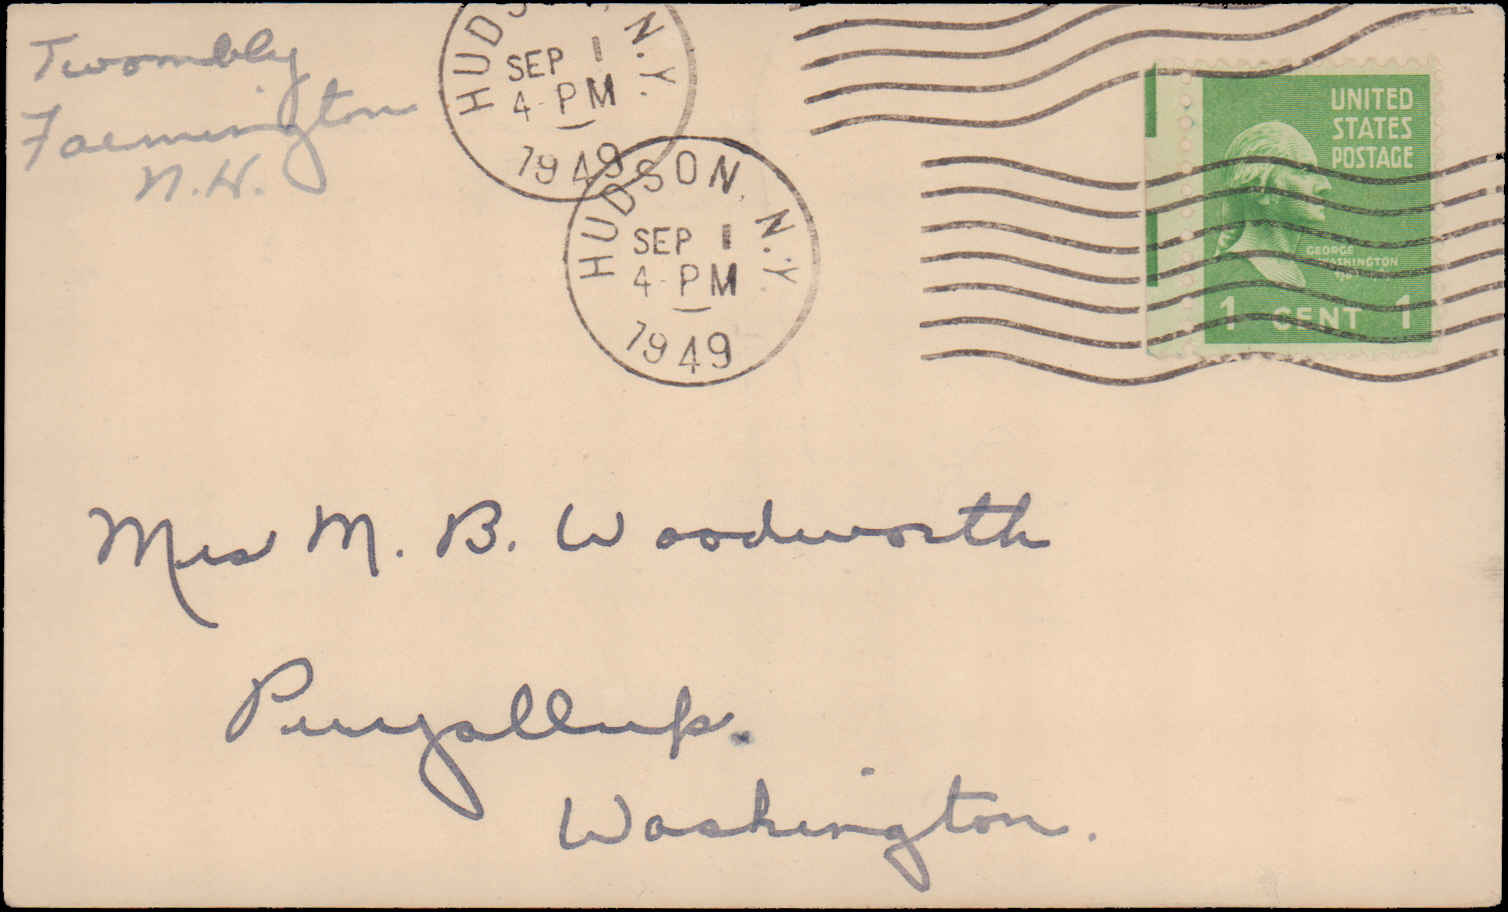 Twombly
Farmington
N.H.
HUDSON, N.Y.
SEP 1
4-PM
1949
HUDSON, N.Y.
SEP 1
4-PM
1949
UNITED
STATES
POSTAGE
GEORGE
WASHINGTON
1 CENT 1
Mrs M. B. Woodworth
Puyallup.
Washington.